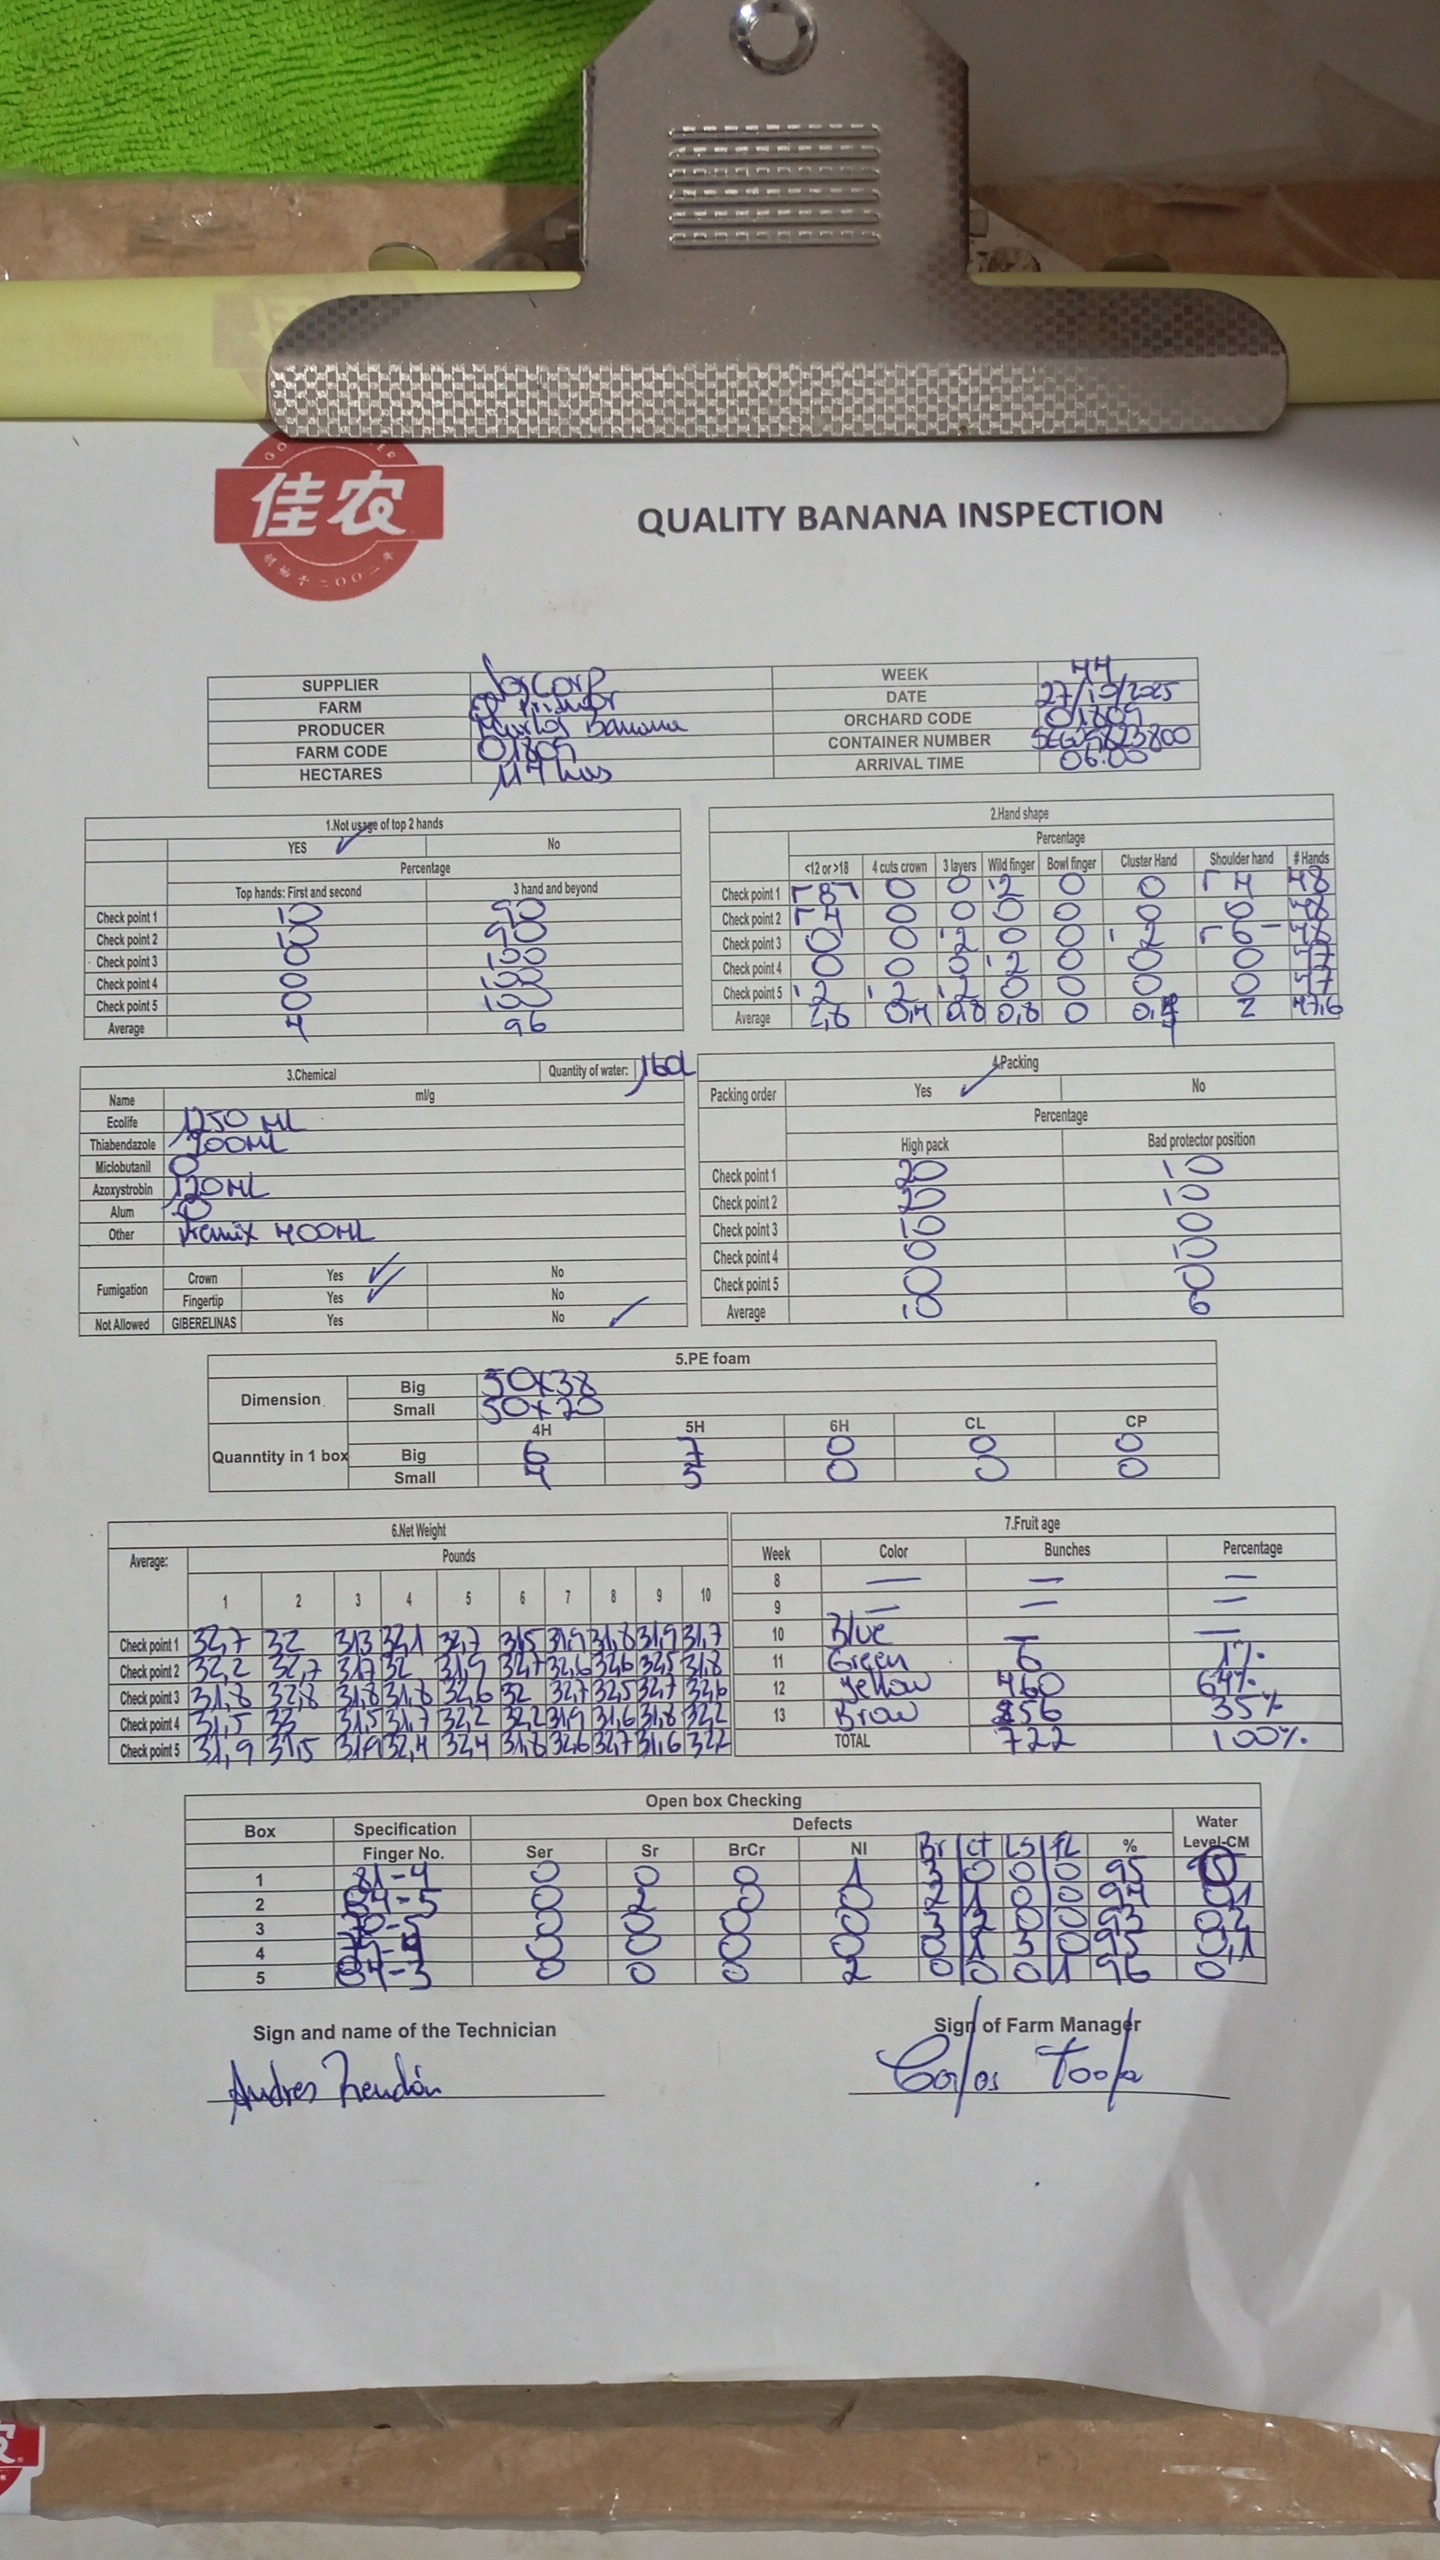 佳农
创始于二〇〇二年
QUALITY BANANA INSPECTION
SUPPLIER Joscorp WEEK 44
FARM DATE 27/10/2025
PRODUCER Banana ORCHARD CODE 01809
FARM CODE 01809 CONTAINER NUMBER
HECTARES 117 has ARRIVAL TIME 06:00
1.Not usage of top 2 hands
YES ✓ No
Percentage
Top hands: First and second 3 hand and beyond
Check point 1 10 90
Check point 2 10 90
Check point 3 0 100
Check point 4 0 100
Check point 5 0 100
Average 4 96
2.Hand shape
Percentage
<12 or >18 4 cuts crown 3 layers Wild finger Bowl finger Cluster Hand Shoulder hand # Hands
Check point 1 8 0 0 2 0 0 4 48
Check point 2 4 0 0 0 0 0 0 48
Check point 3 0 0 2 0 0 2 6 48
Check point 4 0 0 0 2 0 0 0 47
Check point 5 2 2 2 0 0 0 0 47
Average 2,8 0,4 0,8 0,8 0 0,4 2 47,6
3.Chemical Quantity of water: 160L
Name ml/g
Ecolife 1250 ML
Thiabendazole 900ML
Miclobutanil 0
Azoxystrobin 120ML
Alum 0
Other 400ML
Fumigation Crown Yes ✓ No
Fingertip Yes ✓ No
Not Allowed GIBERELINAS Yes No ✓
4.Packing
Packing order Yes ✓ No
Percentage
High pack Bad protector position
Check point 1 20 10
Check point 2 20 10
Check point 3 10 0
Check point 4 0 10
Check point 5 0 0
Average 10 6
5.PE foam
Dimension Big 50x38
Small 50x20
4H 5H 6H CL CP
Quanntity in 1 box Big 6 7 0 0 0
Small 4 5 0 0 0
6.Net Weight
Average: Pounds
1 2 3 4 5 6 7 8 9 10
Check point 1 32,7 32 31,3 32,1 32,7 31,5 31,9 31,8 31,9 31,7
Check point 2 32,2 32,7 31,7 32 31,9 32,7 32,6 32,6 32,5 31,8
Check point 3 31,8 32,8 31,8 31,8 32,6 32 32,7 32,5 32,7 32,6
Check point 4 31,5 33 31,5 31,7 32,2 32,2 31,9 31,6 31,8 32,2
Check point 5 31,9 31,5 31,9 32,4 32,4 31,8 32,6 32,7 31,6 32,2
7.Fruit age
Week Color Bunches Percentage
8 — — —
9 — — —
10 Blue — —
11 Green 6 1%
12 Yellow 460 64%
13 Brow 256 35%
TOTAL 722 100%
Open box Checking
Box Specification Defects Water
Finger No. Ser Sr BrCr NI Br Ct LS FL % Level-CM
1 81-4 0 0 0 1 3 0 0 0 95 0
2 84-5 0 2 0 0 2 1 0 0 94 0,1
3 0 0 0 0 3 2 0 0 93 0,2
4 0 0 0 0 0 1 3 0 95 0,1
5 84-3 0 0 0 2 0 0 0 1 96 0
Sign and name of the Technician Sign of Farm Manager
Andres Rendón Carlos